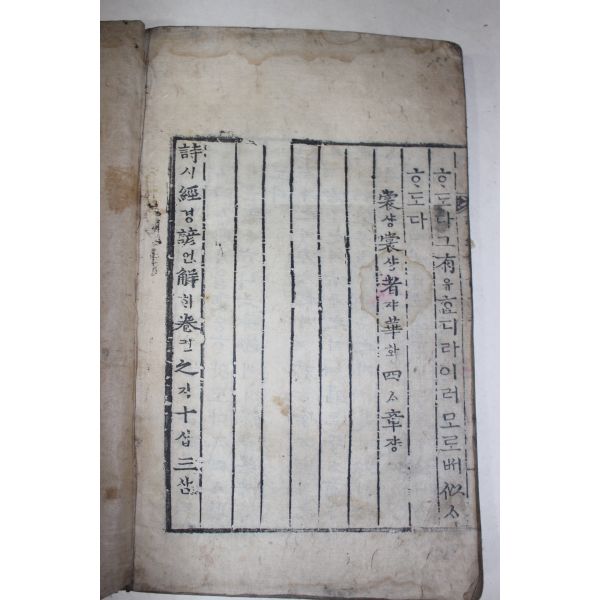 ᄒᆞ도다그有유ᄒᆞᆫ디라이러모로ᄡᅥ似ᄉᆞ
ᄒᆞ도다
裳샹裳샹者쟈華화四ᄉᆞ章쟝
詩시經경諺언解ᄒᆡ卷권之지十십三삼